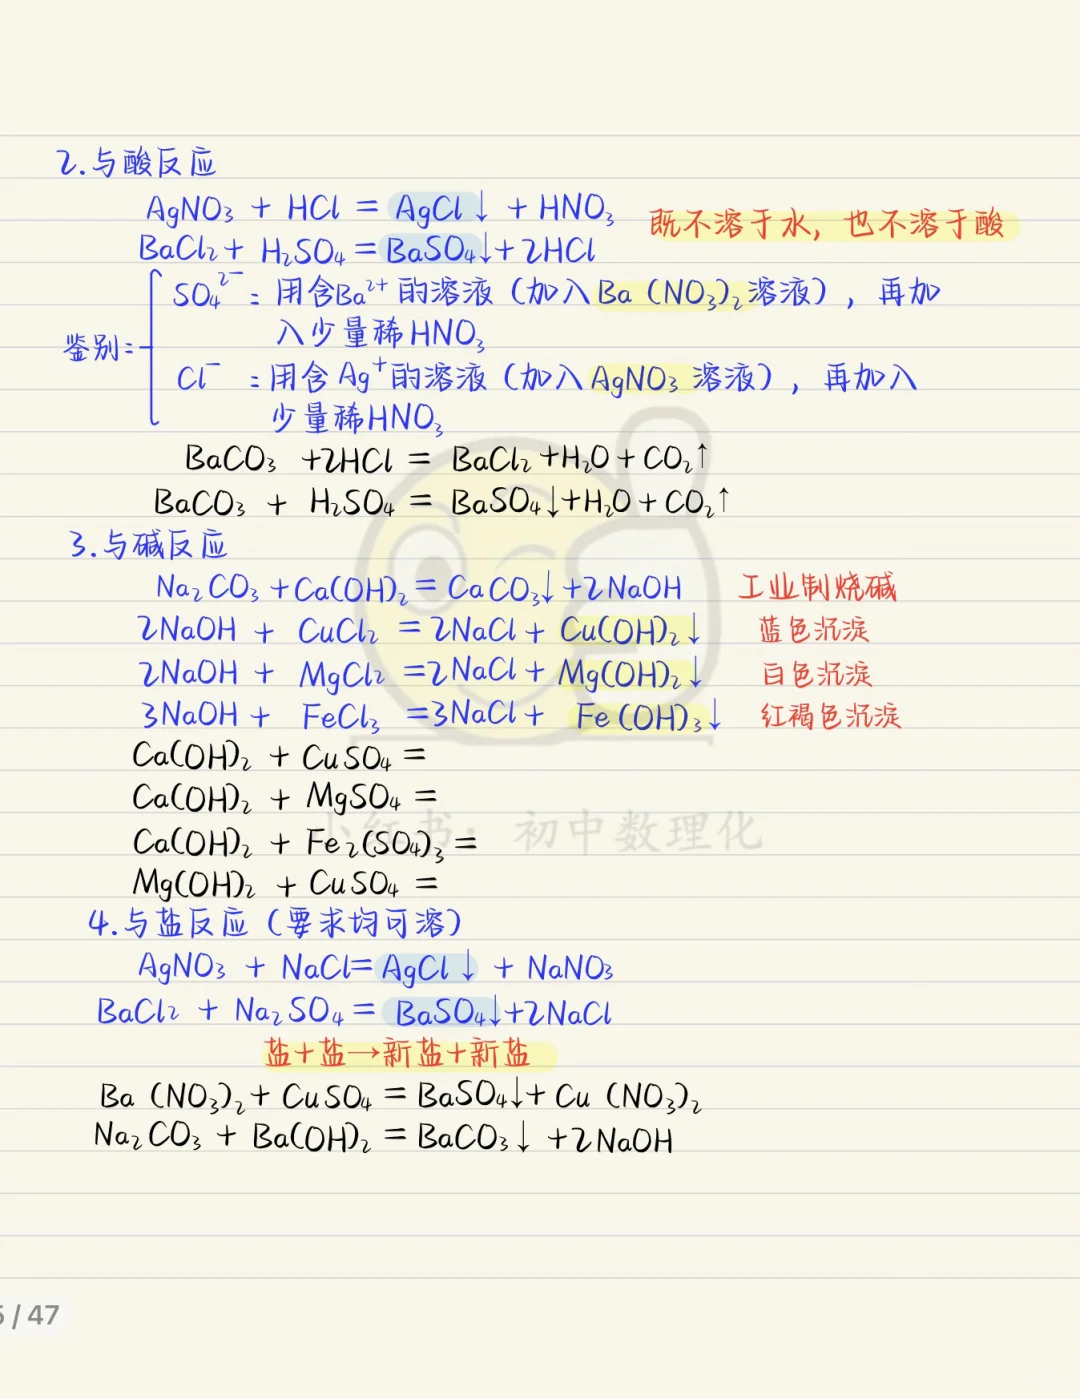 2.与酸反应
AgNO₃ + HCl = AgCl↓ + HNO₃
既不溶于水，也不溶于酸
BaCl₂ + H₂SO₄ = BaSO₄↓ + 2HCl
鉴别:
SO₄²⁻ : 用含Ba²⁺的溶液（加入Ba(NO₃)₂溶液），再加
入少量稀HNO₃
Cl⁻ : 用含Ag⁺的溶液（加入AgNO₃溶液），再加入
少量稀HNO₃
BaCO₃ + 2HCl = BaCl₂ + H₂O + CO₂↑
BaCO₃ + H₂SO₄ = BaSO₄↓ + H₂O + CO₂↑
3.与碱反应
Na₂CO₃ + Ca(OH)₂ = CaCO₃↓ + 2NaOH 工业制烧碱
2NaOH + CuCl₂ = 2NaCl + Cu(OH)₂↓ 蓝色沉淀
2NaOH + MgCl₂ = 2NaCl + Mg(OH)₂↓ 白色沉淀
3NaOH + FeCl₃ = 3NaCl + Fe(OH)₃↓ 红褐色沉淀
Ca(OH)₂ + CuSO₄ =
Ca(OH)₂ + MgSO₄ =
小红书：初中数理化
Ca(OH)₂ + Fe₂(SO₄)₃ =
Mg(OH)₂ + CuSO₄ =
4.与盐反应（要求均可溶）
AgNO₃ + NaCl = AgCl↓ + NaNO₃
BaCl₂ + Na₂SO₄ = BaSO₄↓ + 2NaCl
盐+盐→新盐+新盐
Ba(NO₃)₂ + CuSO₄ = BaSO₄↓ + Cu(NO₃)₂
Na₂CO₃ + Ba(OH)₂ = BaCO₃↓ + 2NaOH
/ 47